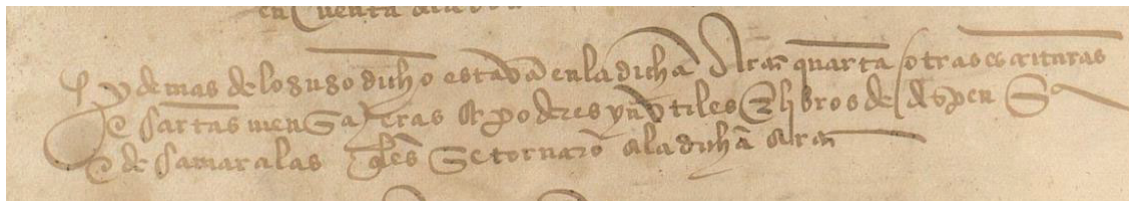 en cuenta
y demas de lo suso dicho estavā en la dicha Arca quarta otras escrituras
e cartas mensajeras e poderes ynvtiles e libros de despensa
e de camara las qles se tornarō a la dicha arca